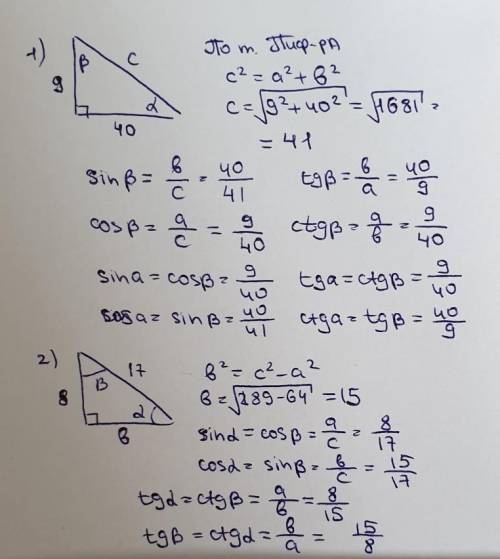 1)
β c
9 α
40
По т. Пиф-рА
c² = a² + b²
c = √9² + 40² = √1681 =
= 41
sinβ = b/c = 40/41 tgβ = b/a = 40/9
cosβ = a/c = 9/40 ctgβ = a/b = 9/40
sina = cosβ = 9/40 tga = ctgβ = 9/40
cosa = sinβ = 40/41 ctga = tgβ = 40/9
2)
17
8 B α
b
b² = c² - a²
b = √289-64 = 15
sinα = cosβ = a/c = 8/17
cosα = sinβ = b/c = 15/17
tgα = ctgβ = a/b = 8/15
tgβ = ctgα = b/a = 15/8